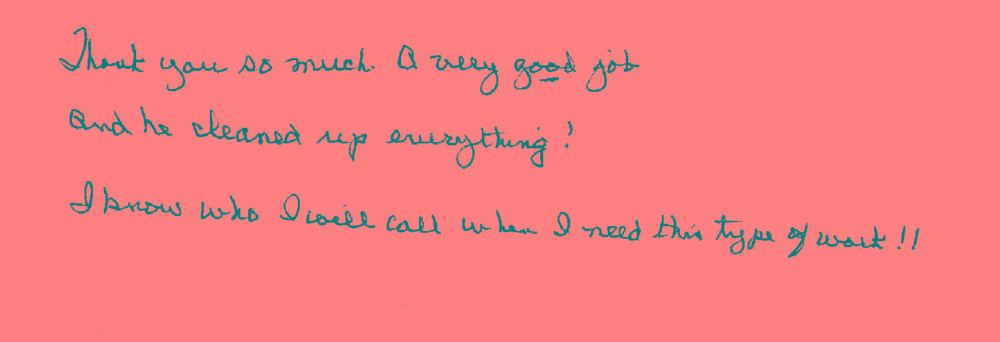 Thank you so much. A very good job
and he cleaned up everything!
I know who I will call when I need this type of work!!